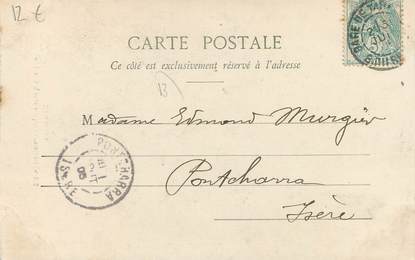 12 €
CARTE POSTALE
Ce côté est exclusivement réservé à l'adresse
13
Madame Edmond Murgier
Pontcharra
Isère
PONTCHARRA
ISÈRE